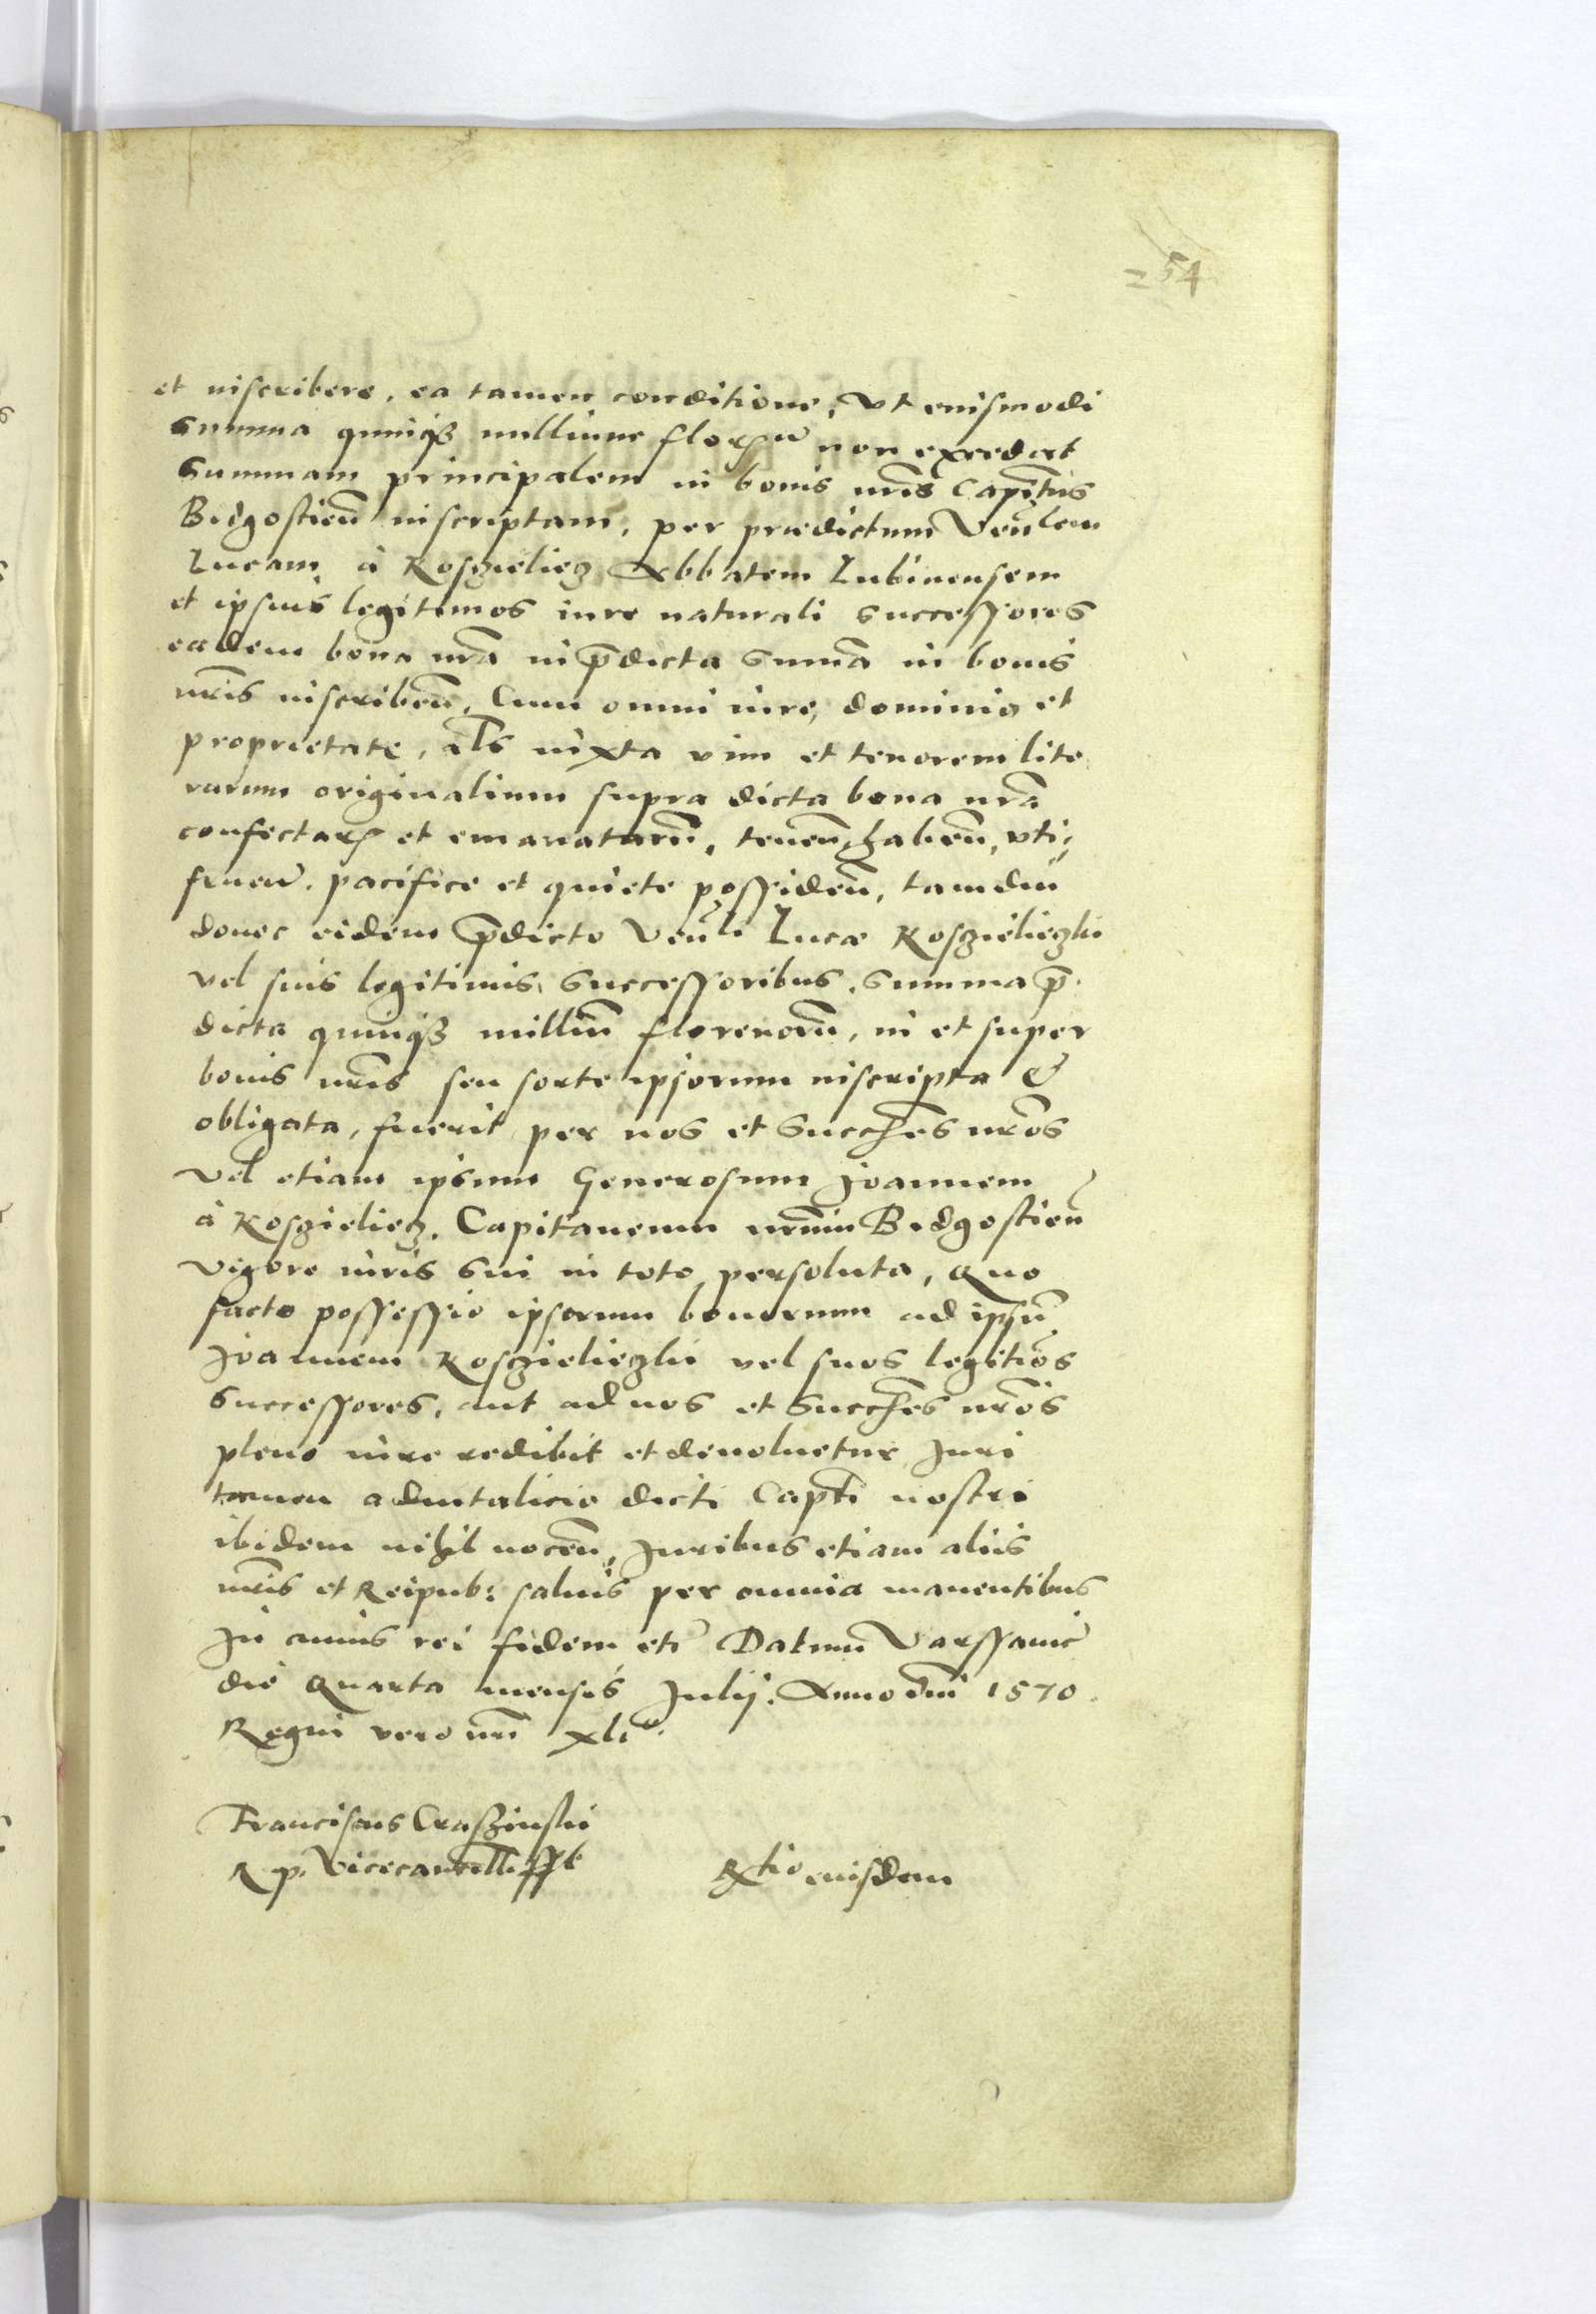 254
et inscribere, ea tamen conditione, vt eiusmodi
summa quinq3 millium florꝝ non excedat
summam principalem in bonis nr̃is Capit̃us
Bidgostien̄ inscriptam, per prædictum Ven̄lem
Lucam à Kosczieliecz Abbatem Lubinensem
et ipsius legitimos iure naturali successores
eadem bona nr̃a in p̄dicta sum̄a in bonis
nr̃is inscriben̄, Cum omni iure, dominio et
proprietate, al̃s iuxta vim et tenorem lite
rarum originalium supra dicta bona nr̃a
confectarꝝ et emanatarū, tenen̄, haben̄, vti
fruen̄. pacifice et quiete possiden̄, tamdiu
donec eidem p̄dicto Ven̄li Lucæ Kosczielieczki
vel suis legitimis successoribus, summa p̄
dicta quinq3 milliū florenorū, in et super
bonis nr̃is seu sorte ipsorum inscripta &
obligata, fuerit per nos et Succh̃es nr̃os
Vel etiam ipsum Generosum Joannem
à Kosczieliecz, Capitaneum nr̃um Bidgostien̄
vigore iuris sui in toto persoluta, Quo
facto possessio ipsorum bonorum ad ipsū
Joannem Kosczielieczki vel suos legitīos
successores, aut ad nos et Succh̃es nr̃os
pleno iure redibit et deuoluetur Juri
tamen aduitalicio dicti Capt̃i nostri
ibidem nihil nocen̄, Juribus etiam aliis
nr̃is et Reipub: saluis per omnia manentibus
In cuius rei fidem etc̃ Datum Varssauie
die Quarta mensis Julij. Anno dñi 1570.
Regni vero nr̃i xli°.
Franciscus Crasżinski
R. p. Vicecancell: sst
Rltio eiusdem